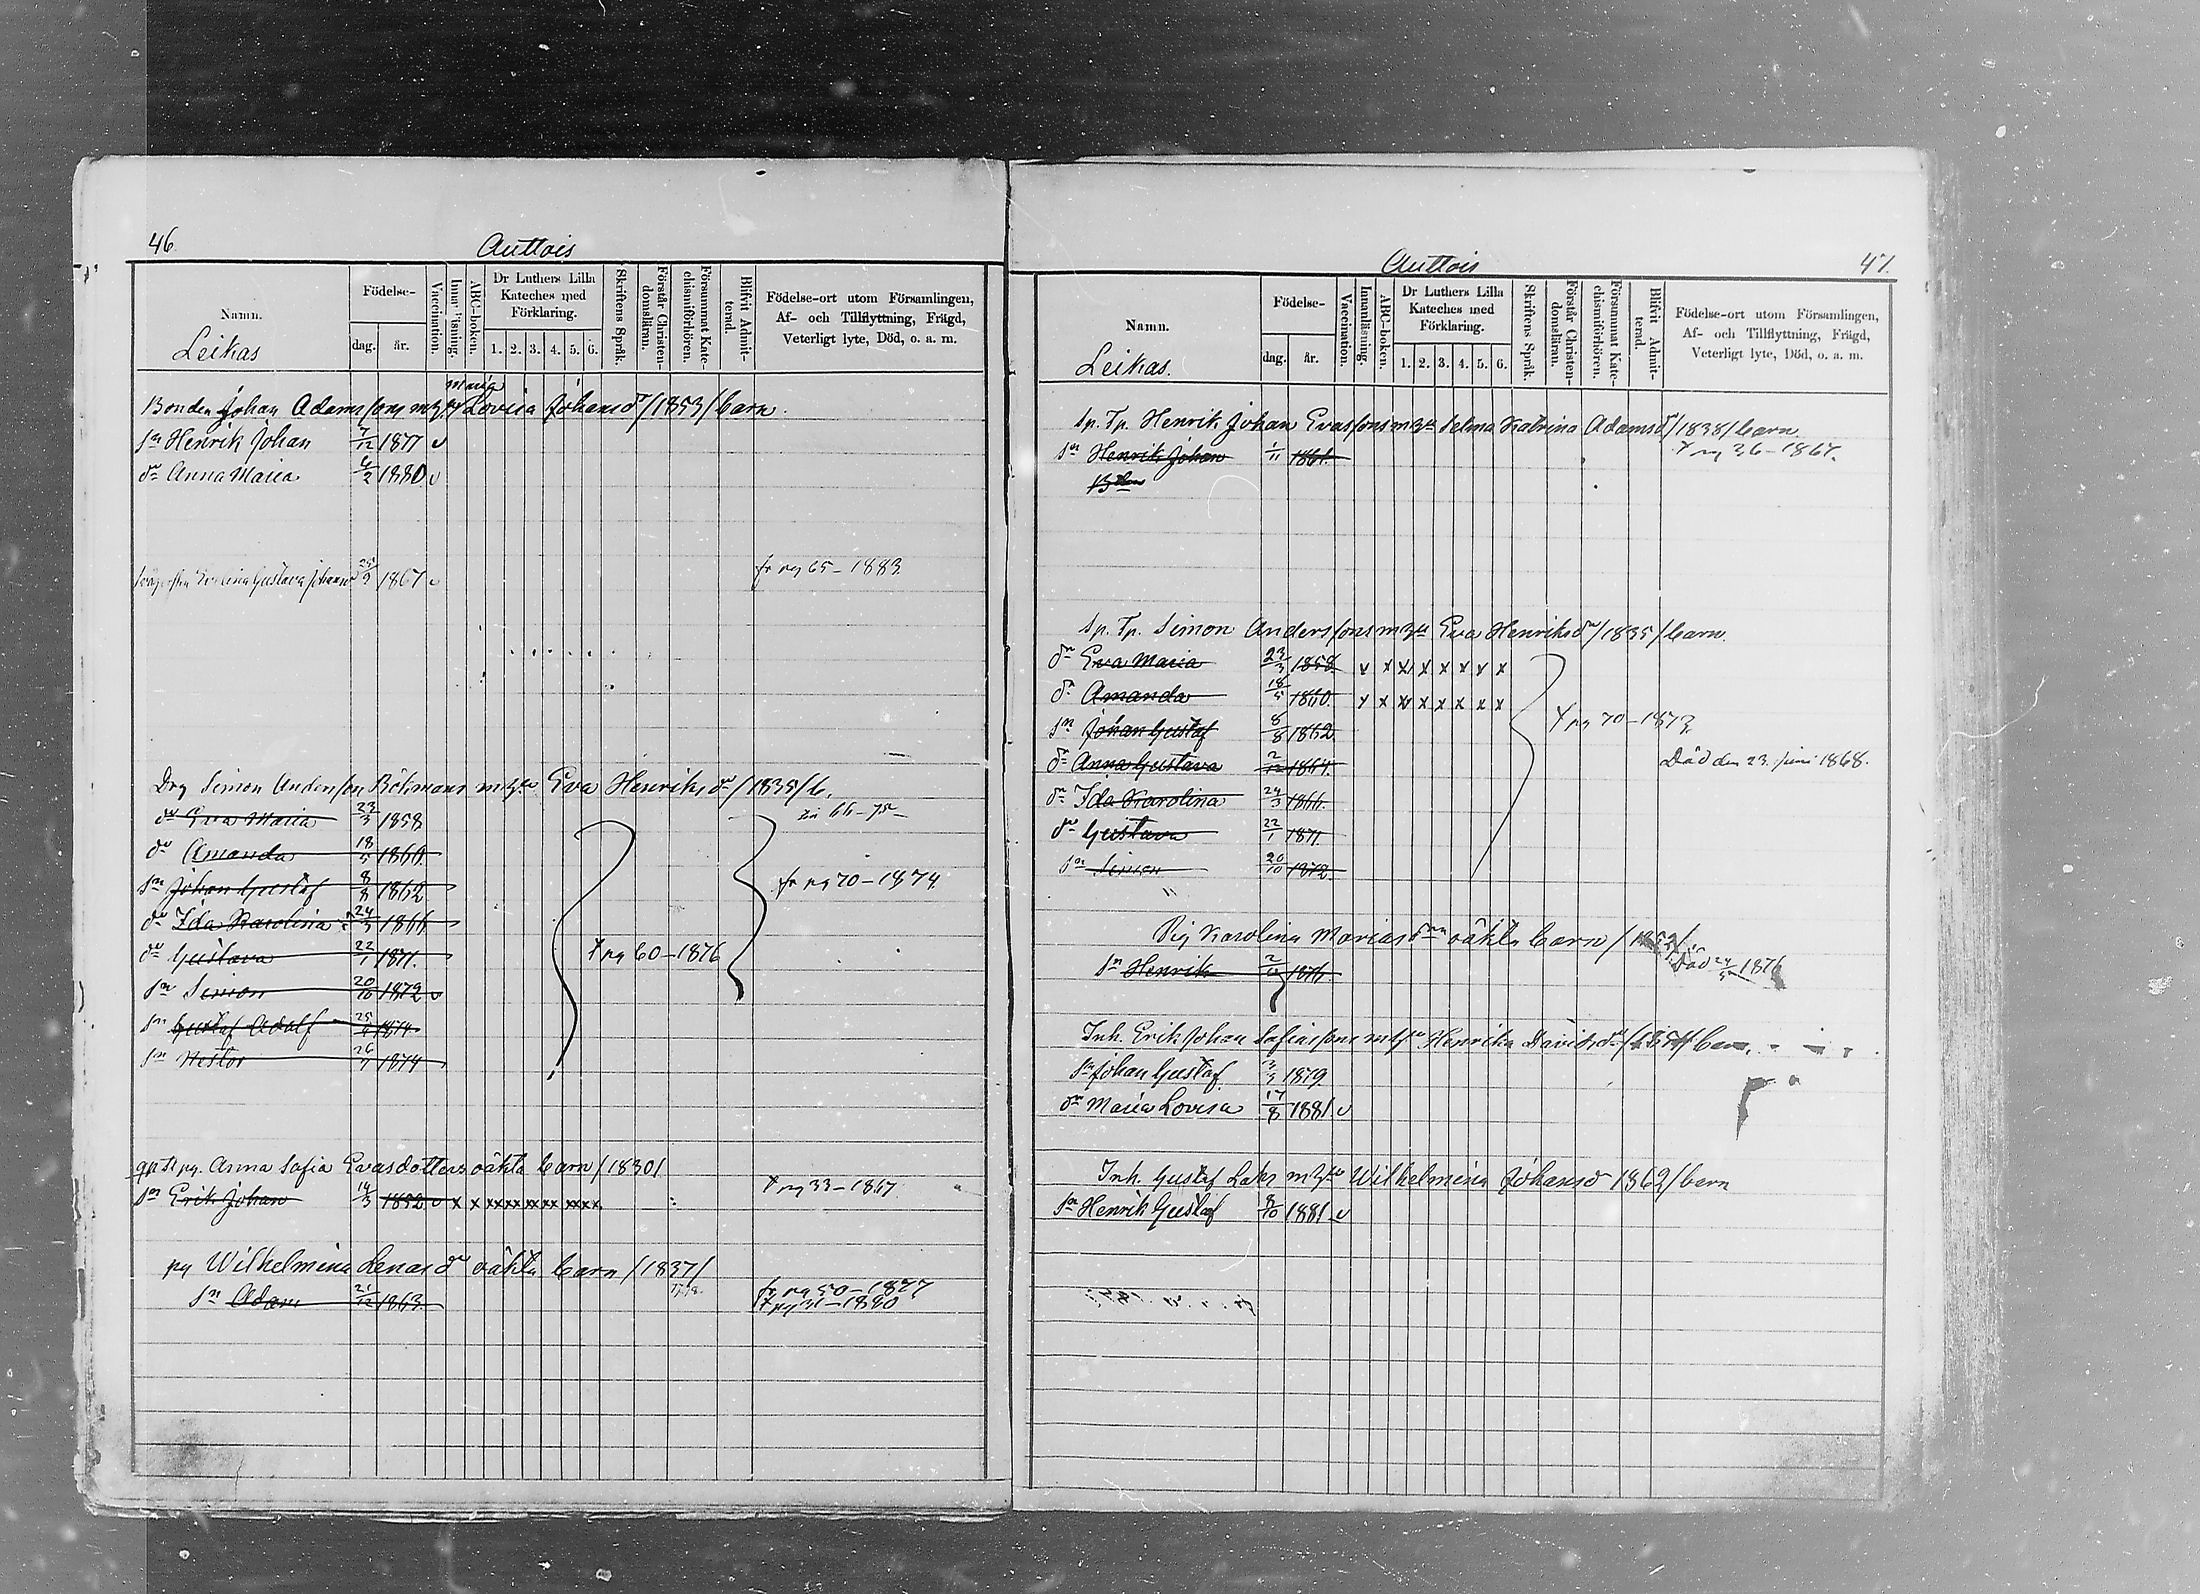 46.
Auttois
Namn.
Leikas
Födelse-
dag.
år.
Vaccination.
Innanläsning.
ABC-boken.
Dr Luthers Lilla
Kateches med
Förklaring.
1. 2. 3. 4. 5. 6.
Skriftens Språk.
Förstår Christen-
domsläran.
Försummat Kate-
chismiförhören.
Blifvit Admit-
terad.
Födelse-ort utom Församlingen,
Af- och Tillflyttning, Frägd,
Veterligt lyte, Död, o. a. m.
Maria
Bonden Johan Adamssons m h Lovisa Johansdr /1853/ barn.
sn Henrik Johan 7/12 1877 v
dr Anna Maria 6/2 1880 v
Evelina Gustava 1867 v fr pg 65 - 1883.
Drg Simon Andersson Bökmans m hu Eva Henriksdr /1835/ b.
dr Eva Maria 23/3 1858 66-75
dr Amanda 18/5 1860.
sn Johan Gustaf 8/8 1862 fr pg 70 - 1874
dr Ida Karolina 24/3 1866
dr Gustava 22/1 1871. pg 60 - 1876
sn Simon 20/10 1872 v
sn Gustaf Adolf 1874
sn Nestor 1874
Anna Sofia Evasdotters oäkta barn /1830/
sn Erik Johan 14/3 1852 v x x x x x x x x x x x x pg 33 - 1867
pg Wilhelmina Lenasdr oäkta barn /1837/
sn Adam 21/12 1863. fr pg 50 - 1877
pg 31 - 1880
Auttois
47.
Namn.
Leikas.
Födelse-
dag.
år.
Vaccination.
Innanläsning.
ABC-boken.
Dr Luthers Lilla
Kateches med
Förklaring.
1. 2. 3. 4. 5. 6.
Skriftens Språk.
Förstår Christen-
domsläran.
Försummat Kate-
chismiförhören.
Blifvit Admit-
terad.
Födelse-ort utom Församlingen,
Af- och Tillflyttning, Frägd,
Veterligt lyte, Död, o. a. m.
Sp. Tp. Henrik Johan Evassons m hu Selma Katrina Adamsdr /1838/ barn
sn Henrik Johan 1/11 1861. pg 36 - 1867.
Sp. Tp. Simon Anderssons m hu Eva Henriksdr /1835/ barn.
dr Eva Maria 23/3 1858 v x x x x x x x x
dr Amanda 18/5 1860. v x x x x x x x x
sn Johan Gustaf 8/8 1862 pg 70 - 1873.
dr Anna Gustava 2/12 1864. Död den 23. juni 1868.
dr Ida Karolina 24/3 1866.
dr Gustava 22/1 1871.
sn Simon 20/10 1872.
"
Pig Karolina Mariasdrs oäkta barn
sn Henrik 1876. Död 1876
Inh. Erik Johan Sofiassons m hu Henrika Davidsdr barn.
sn Johan Gustaf 1879
dr Maria Lovisa 17/8 1881 v
Inh. Gustaf Laks m hu Wilhelmina Johansdr 1862/ barn
sn Henrik Gustaf 8/10 1881 v